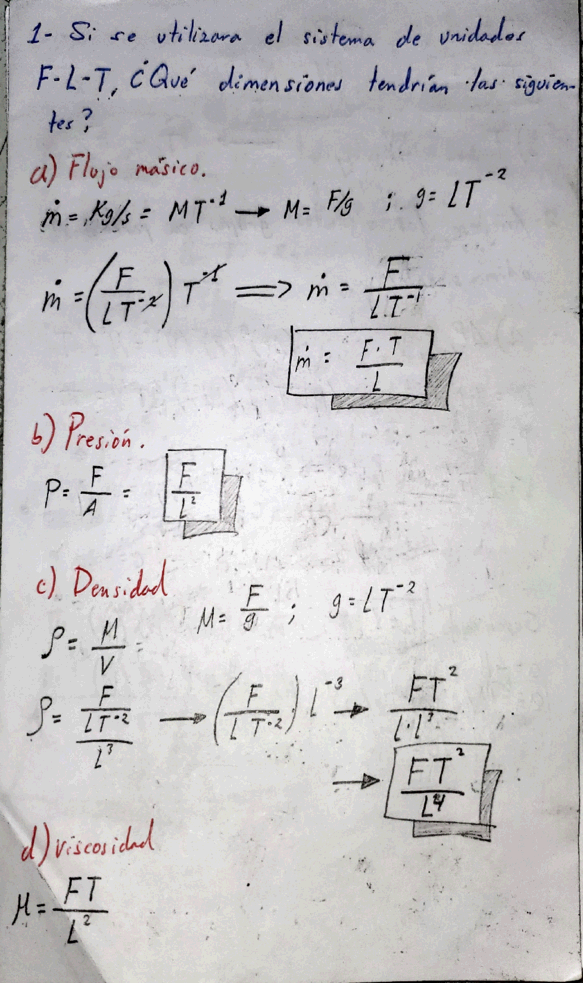 1- Si se utilizara el sistema de unidades
F-L-T, ¿Qué dimensiones tendrían las siguien-
tes?
a) Flujo másico.
ṁ = Kg/s = MT⁻¹ → M = F/g ; g = LT⁻²
ṁ = (F / LT⁻²) T⁻¹ ⟹ ṁ = F / L.T⁻¹
ṁ = F·T / L
b) Presión.
P = F/A = F/L²
c) Densidad
M = F/g ; g = LT⁻²
ρ = M/V =
ρ = (F / LT⁻²) / L³ → (F / LT⁻²) L⁻³ → FT² / L·L³
→ FT² / L⁴
d) Viscosidad
μ = FT / L²